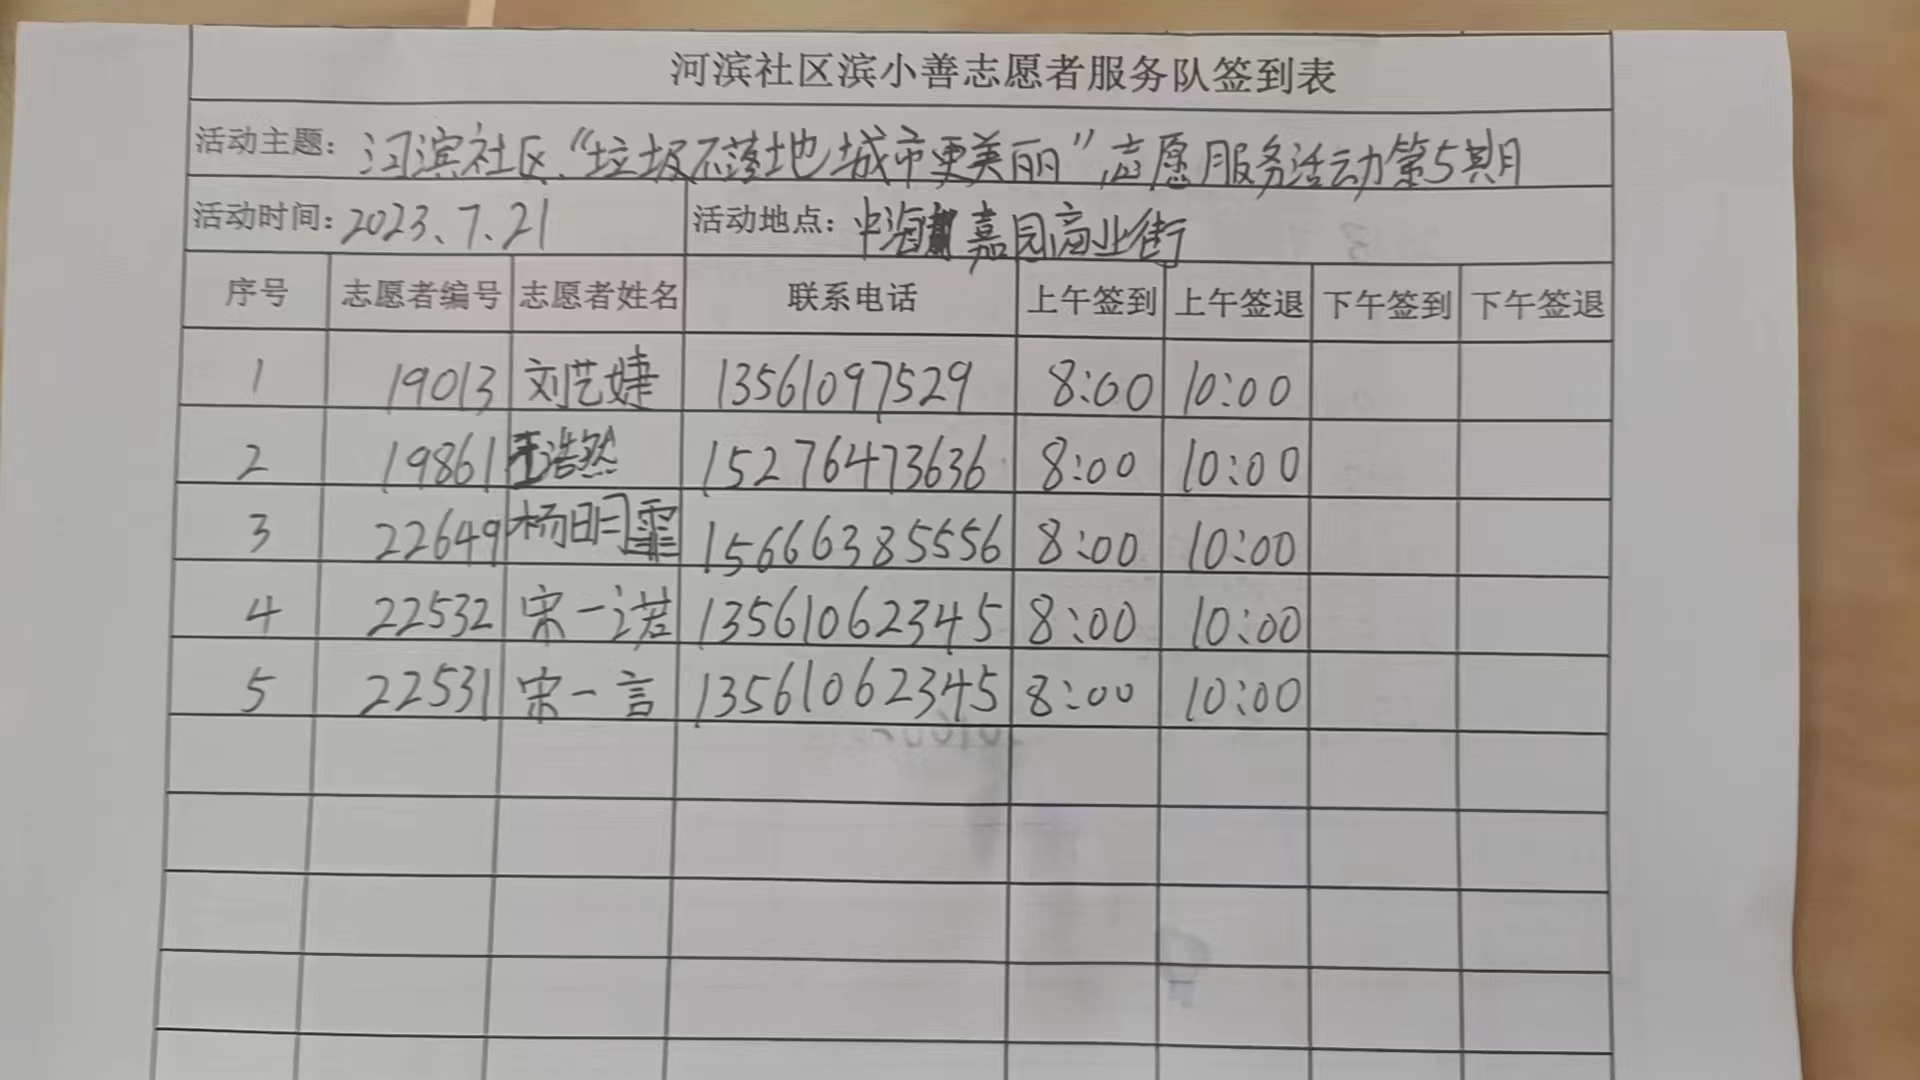 河滨社区滨小善志愿者服务队签到表
活动主题: 河滨社区“垃圾不落地 城市更美丽”志愿服务活动第5期
活动时间: 2023.7.21 活动地点: 中海嘉园商业街
序号 志愿者编号 志愿者姓名 联系电话 上午签到 上午签退 下午签到 下午签退
1 19013 刘艺婕 13561097529 8:00 10:00
2 19861 王浩然 15276473636 8:00 10:00
3 22649 杨明霏 15666385556 8:00 10:00
4 22532 宋一诺 13561062345 8:00 10:00
5 22531 宋一言 13561062345 8:00 10:00